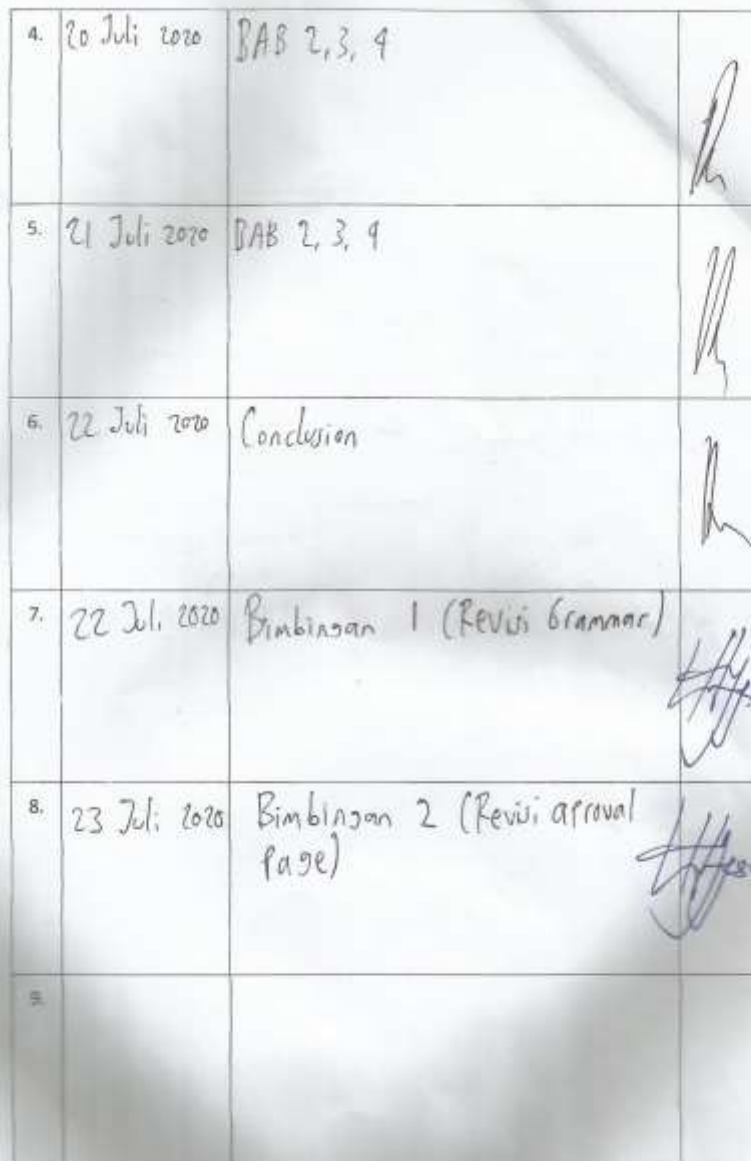 4. 20 Juli 2020 BAB 2, 3, 4
5. 21 Juli 2020 BAB 2, 3, 4
6. 22 Juli 2020 Conclusion
7. 22 Juli 2020 Bimbingan 1 (Revisi Grammar)
8. 23 Juli 2020 Bimbingan 2 (Revisi aproval
Page)
9.